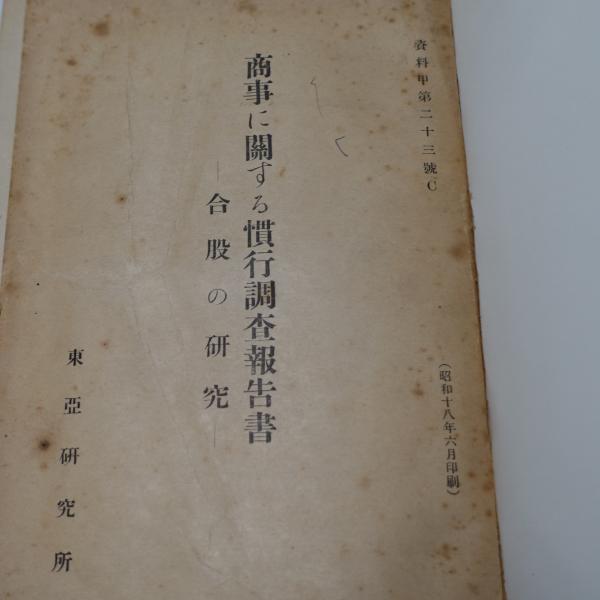 資料甲第二十三號C
(昭和十八年六月印刷)
商事に關する慣行調査報告書
―合股の研究―
東亞研究所